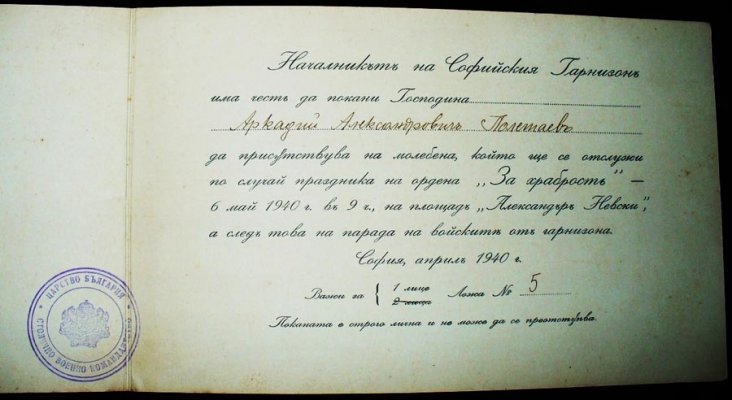 Началникътъ на Софийския Гарнизонъ
има честь да покани Господина
Аркадий Александровичъ Полетаевъ
да присѫтствува на молебена, който ще се отслужи
по случай празника на ордена „За храбрость" —
6 май 1940 г. въ 9 ч., на площадь „Александъръ Невски",
а следъ това на парада на войскитѣ отъ гарнизона.
София, априлъ 1940 г.
Важи за { 1 лице
2 лица
Ложа № 5
Поканата е строго лична и не може да се преотстѫпва.
ЦАРСТВО БЪЛГАРИЯ
СТОЛИЧНО ВОЕННО КОМАНДАНТСТВО